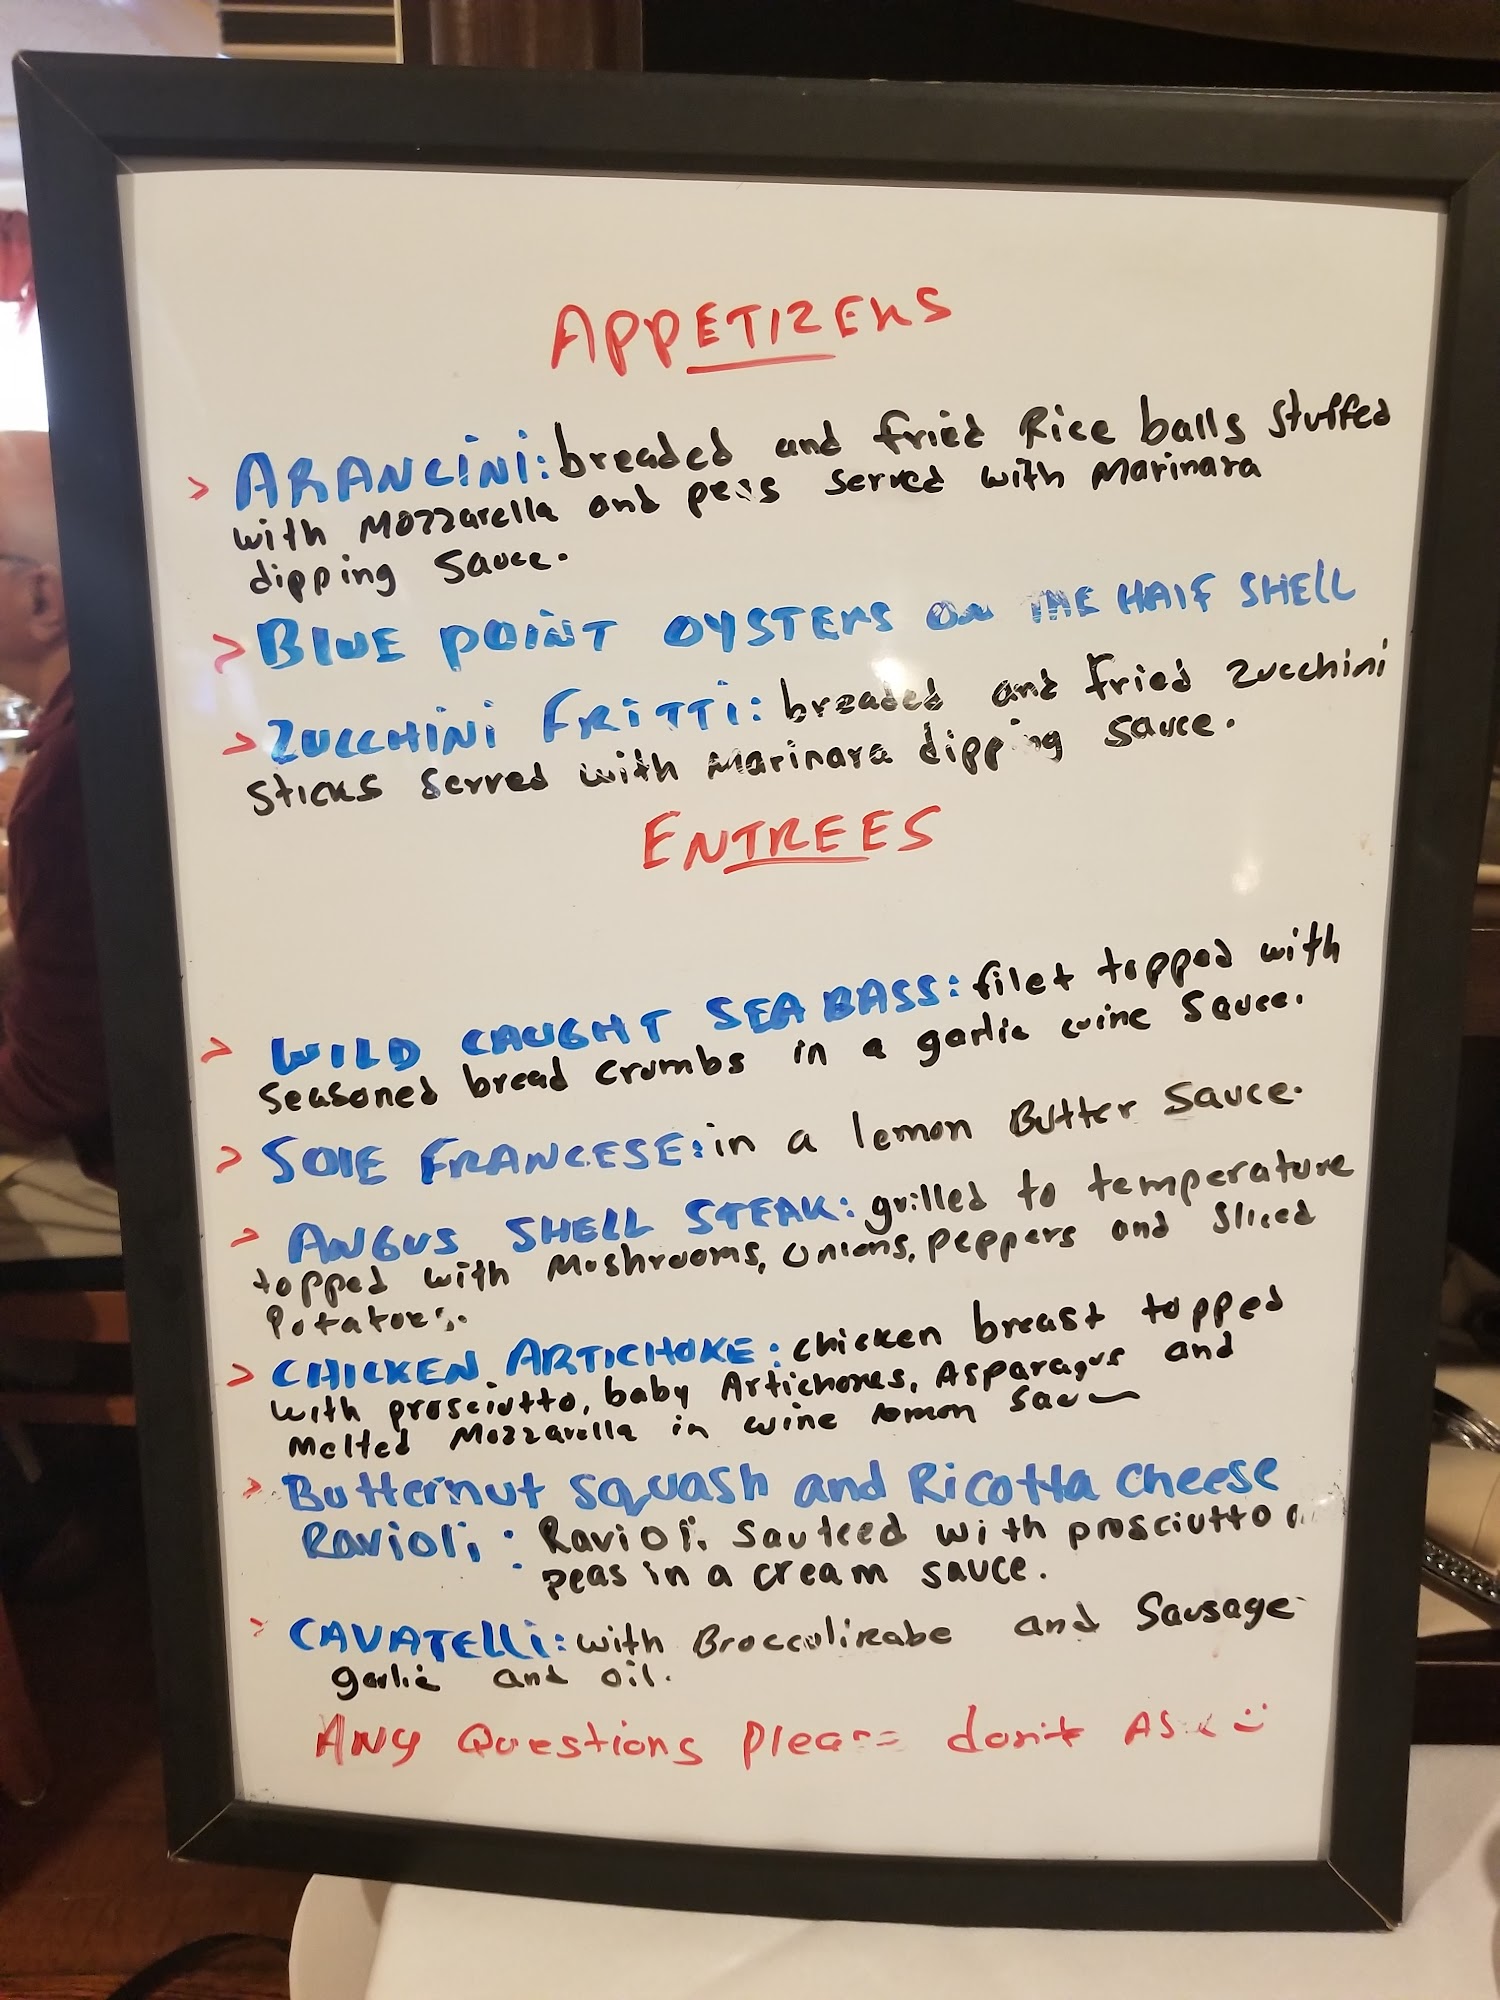 APPETIZERS
> ARANCINI: breaded and fried Rice balls stuffed
with Mozzarella and peas served with Marinara
dipping Sauce.
> BLUE POINT OYSTERS ON THE HALF SHELL
> ZUCCHINI FRITTI: breaded and fried Zucchini
sticks served with Marinara dipping sauce.
ENTREES
> WILD CAUGHT SEA BASS: filet topped with
Seasoned bread crumbs in a garlic wine Sauce.
> SOLE FRANCESE: in a lemon Butter Sauce.
> ANGUS SHELL STEAK: grilled to temperature
topped with Mushrooms, Onions, peppers and Sliced
Potatoes.
> CHICKEN ARTICHOKE: chicken breast topped
with prosciutto, baby Artichokes, Asparagus and
Melted Mozzarella in wine lemon Sauce
> Butternut squash and Ricotta cheese
Ravioli: Ravioli sauteed with prosciutto
peas in a cream sauce.
> CAVATELLI: with Broccolirabe and Sausage
garlic and oil.
ANY Questions please don't ASK :)